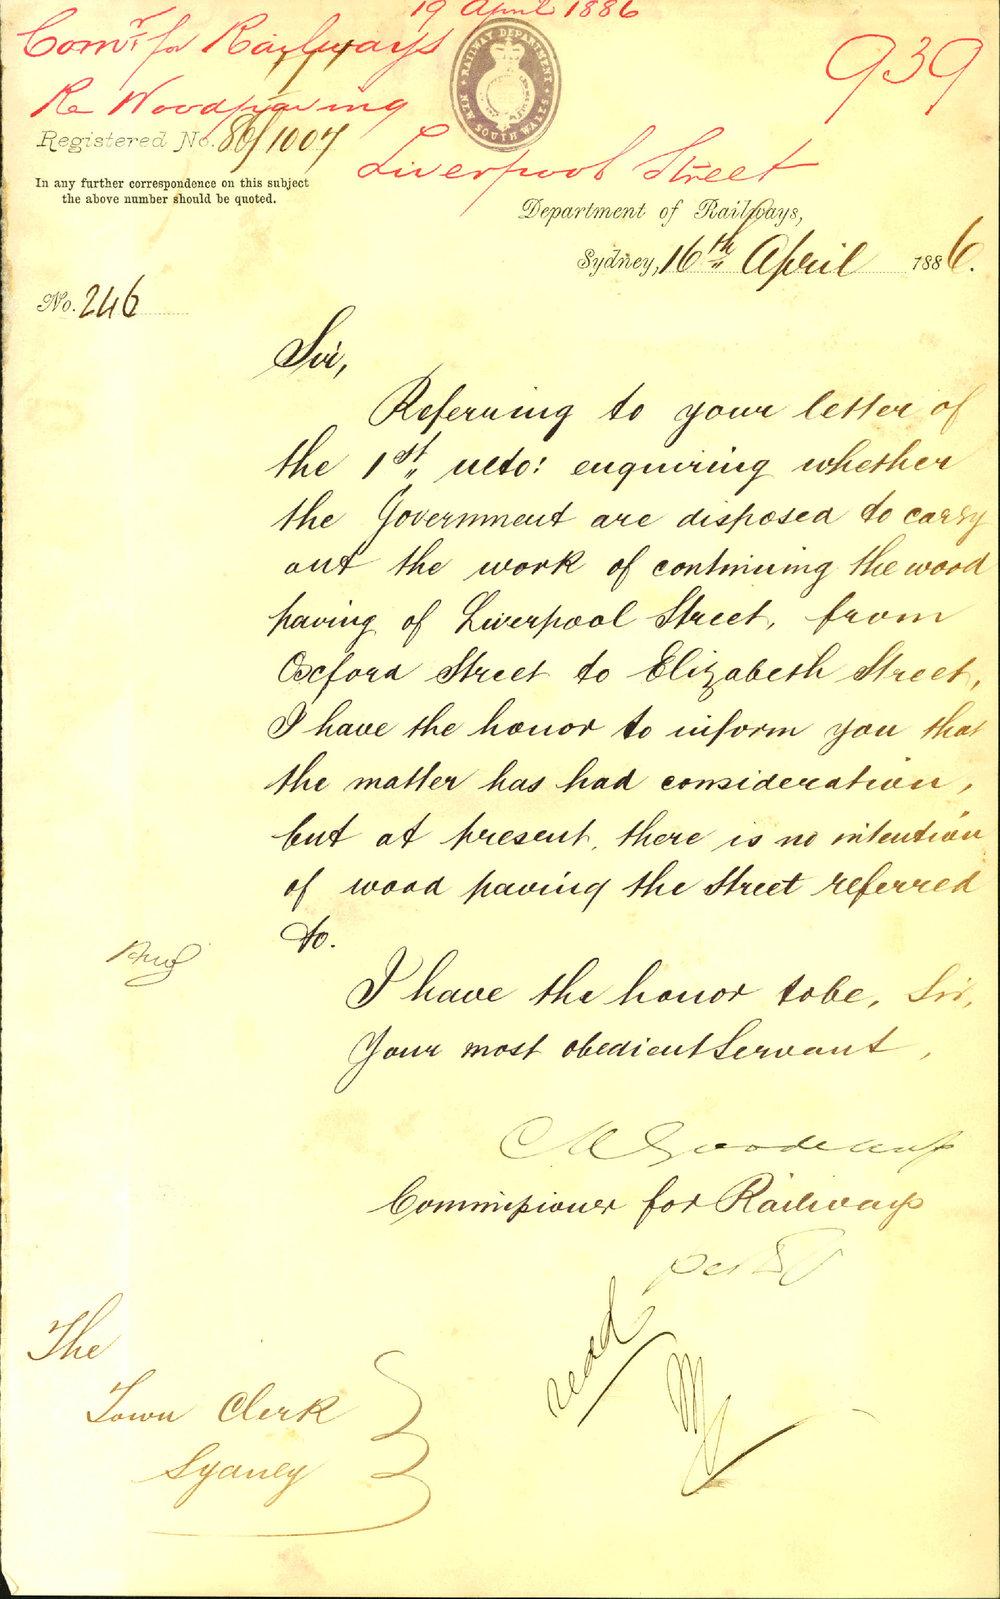 19 April 1886
Comr. for Railways
939
Re Woodpaving
RAILWAY DEPARTMENT
NEW SOUTH WALES
Registered No. 86/1007
Liverpool Street
In any further correspondence on this subject
the above number should be quoted.
Department of Railways,
Sydney, 16th April 1886.
No. 246
Sir,
Referring to your letter of
the 1st ulto: enquiring whether
the Government are disposed to carry
out the work of continuing the wood
paving of Liverpool Street, from
Oxford Street to Elizabeth Street,
I have the honor to inform you that
the matter has had consideration,
but at present, there is no intention
of wood paving the Street referred
to.
I have the honor to be, Sir,
Your most obedient Servant,
Commissioner for Railways
read
The
Town Clerk
Sydney